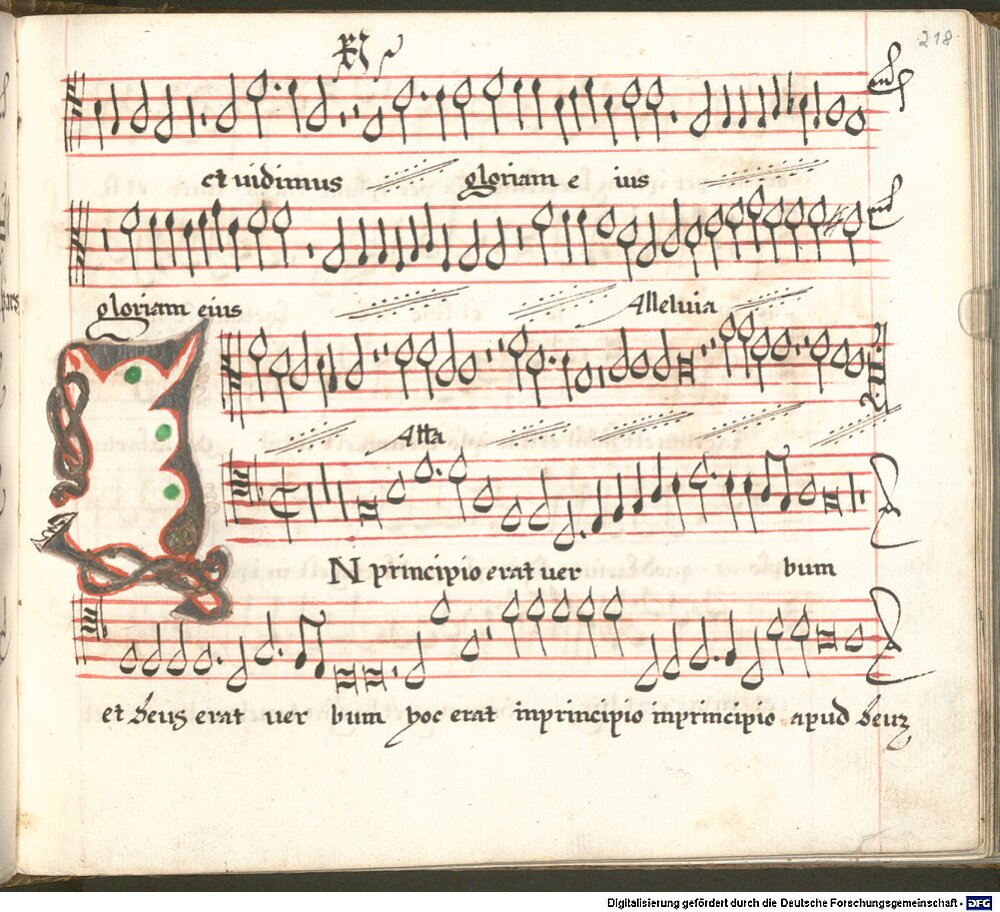 218
et uidimus gloriam ius
gloriam eius Alleluia
Alla
IN principio erat uer bum
et deus erat uer bum hoc erat inprincipio inprincipio apud deuz
Digitalisierung gefördert durch die Deutsche Forschungsgemeinschaft - DFG